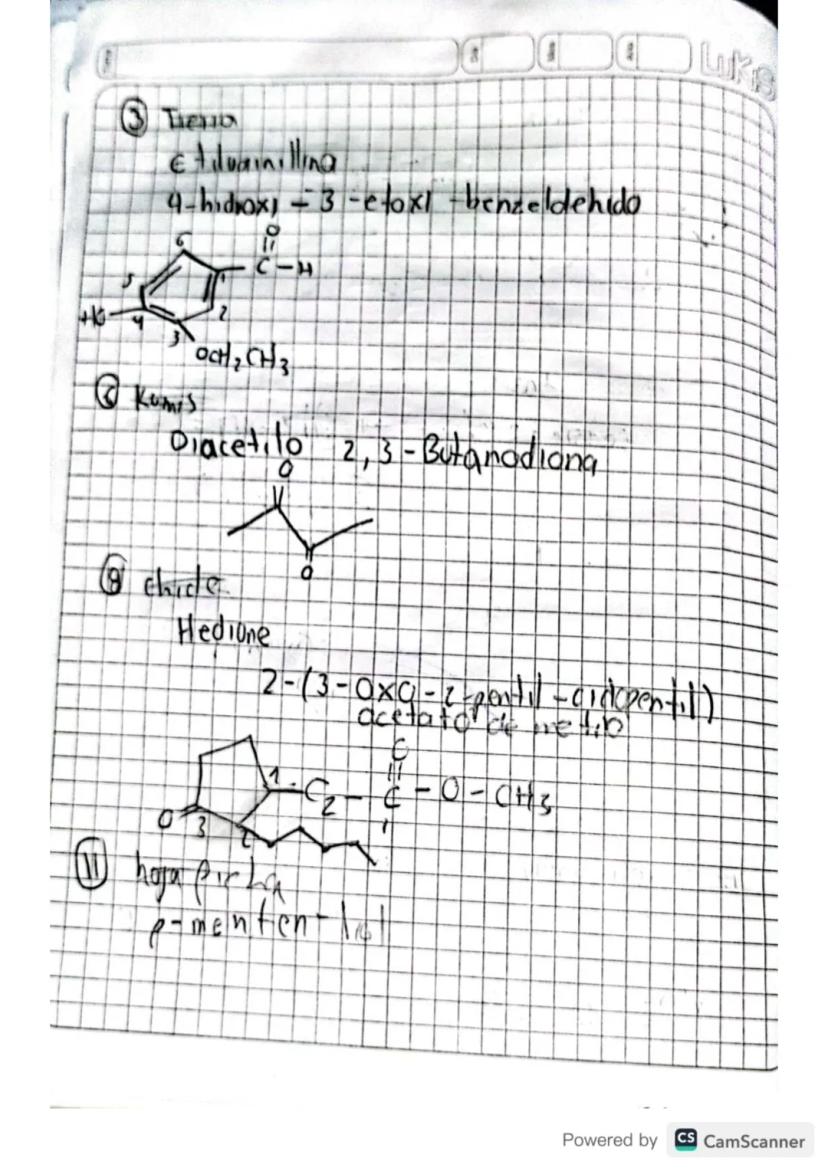 LUKAS
③ Tierra
Etilvainillina
4-hidroxi - 3 -etoxi -benzeldehido
O
6
C - H
5
1
2
HO
4
3
OCH₂CH₃
Kumis
Diacetilo 2,3-Butanodiona
O
O
chicle
Hedione
2-(3-Oxo-2-pentil-ciclopentil)
acetato de metilo
1
C₂ - C - O - CH₃
O 3
2
⑪ hoja
p-menten-
Powered by CS CamScanner